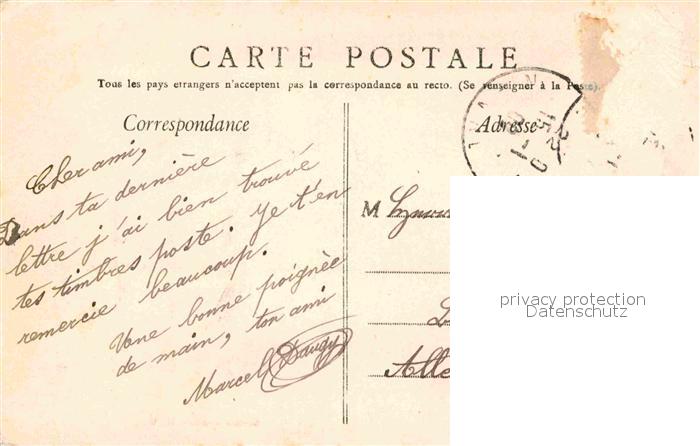 CARTE POSTALE
Tous les pays etrangers n'acceptent pas la correspondance au recto. (Se renseigner à la Poste).
Correspondance
Cher ami,
Dans ta dernière
lettre j'ai bien trouvé
tes timbres poste. Je t'en
remercie beaucoup.
Une bonne poignée
de main, ton ami
Marcel Daugy
Adresse
M
privacy protection
Datenschutz